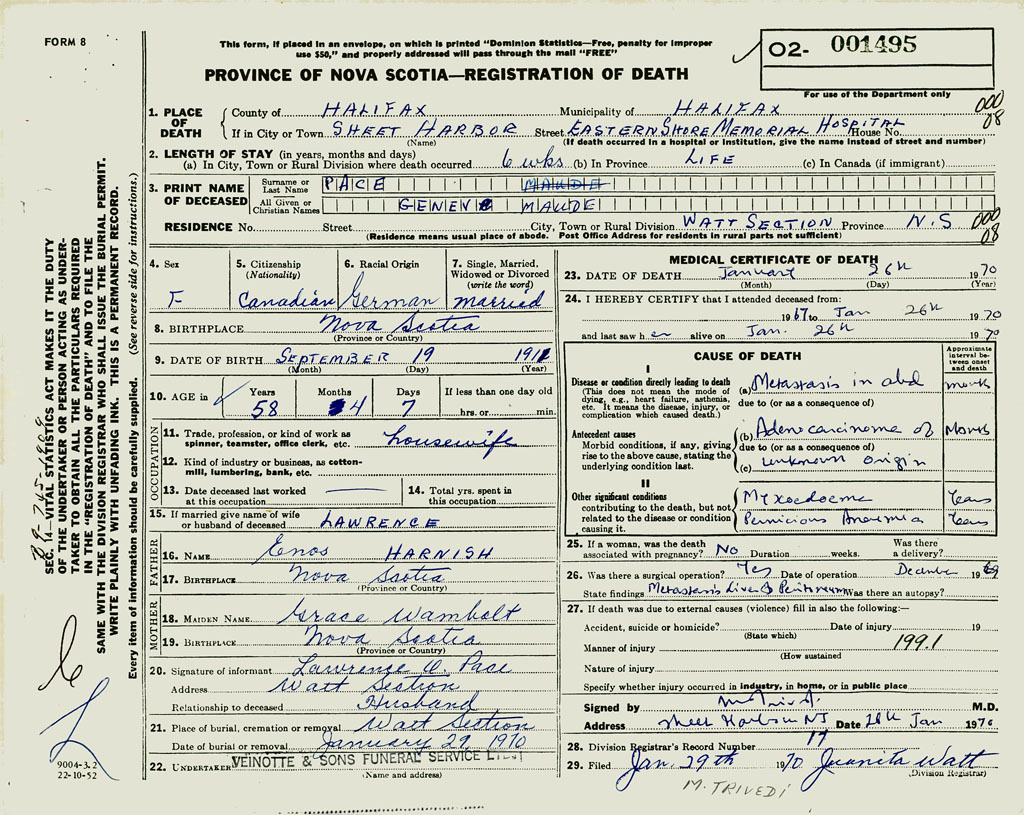 FORM 8
This form, if placed in an envelope, on which is printed "Dominion Statistics—Free, penalty for improper
use $50," and properly addressed will pass through the mail "FREE"
PROVINCE OF NOVA SCOTIA—REGISTRATION OF DEATH
O2- 001495
For use of the Department only
1. PLACE OF DEATH County of HALIFAX Municipality of HALIFAX 000
If in City or Town SHEET HARBOR Street EASTERN SHORE MEMORIAL HOSPITAL House No. 08
(Name) (If death occurred in a hospital or institution, give the name instead of street and number)
2. LENGTH OF STAY (in years, months and days)
(a) In City, Town or Rural Division where death occurred 6 wks (b) In Province LIFE (c) In Canada (if immigrant)
3. PRINT NAME OF DECEASED Surname or Last Name PACE MAUDE
All Given or Christian Names GENEVE MAUDE
RESIDENCE No. Street City, Town or Rural Division WATT SECTION Province N.S 000 08
(Residence means usual place of abode. Post Office Address for residents in rural parts not sufficient)
4. Sex 5. Citizenship (Nationality) 6. Racial Origin 7. Single, Married, Widowed or Divorced (write the word)
F Canadian German married
8. BIRTHPLACE Nova Scotia
(Province or Country)
9. DATE OF BIRTH SEPTEMBER 19 1911
(Month) (Day) (Year)
10. AGE in Years Months Days If less than one day old
58 4 7 hrs. or min.
OCCUPATION
11. Trade, profession, or kind of work as spinner, teamster, office clerk, etc. housewife
12. Kind of industry or business, as cotton-mill, lumbering, bank, etc.
13. Date deceased last worked at this occupation 14. Total yrs. spent in this occupation
15. If married give name of wife or husband of deceased LAWRENCE
FATHER
16. NAME Enos HARNISH
17. BIRTHPLACE Nova Scotia
(Province or Country)
MOTHER
18. MAIDEN NAME Grace Wambolt
19. BIRTHPLACE Nova Scotia
(Province or Country)
20. Signature of informant Lawrence A. Pace
Address Watt Section
Relationship to deceased Husband
21. Place of burial, cremation or removal Watt Section
Date of burial or removal January 29 1970
22. UNDERTAKER VEINOTTE & SONS FUNERAL SERVICE LTD.
(Name and address)
MEDICAL CERTIFICATE OF DEATH
23. DATE OF DEATH January 26th 1970
(Month) (Day) (Year)
24. I HEREBY CERTIFY that I attended deceased from:
1967 to Jan 26th 1970
and last saw her alive on Jan. 26th 1970
CAUSE OF DEATH
Approximate interval between onset and death
I
Disease or condition directly leading to death
(This does not mean the mode of dying, e.g., heart failure, asthenia, etc. It means the disease, injury, or complication which caused death.)
(a) Metastasis in abd
due to (or as a consequence of)
Antecedent causes
Morbid conditions, if any, giving rise to the above cause, stating the underlying condition last.
(b) Adenocarcinoma of
due to (or as a consequence of)
(c) unknown origin
II
Other significant conditions
contributing to the death, but not related to the disease or condition causing it.
Myxoedema Years
Pernicious Anaemia Years
25. If a woman, was the death associated with pregnancy? No Duration weeks. Was there a delivery?
26. Was there a surgical operation? Yes Date of operation December 1969
State findings Metastasis Liver & Peritoneum Was there an autopsy?
27. If death was due to external causes (violence) fill in also the following:—
Accident, suicide or homicide? Date of injury 19
(State which)
Manner of injury 199.1
(How sustained
Nature of injury
Specify whether injury occurred in industry, in home, or in public place
Signed by M.D.
Address Sheet Harbour NS Date 28th Jan 1970
28. Division Registrar's Record Number 17
29. Filed Jan. 29th 1970 Juanita Watt
(Division Registrar)
M. TRIVEDI
SEC. 14—VITAL STATISTICS ACT MAKES IT THE DUTY
OF THE UNDERTAKER OR PERSON ACTING AS UNDER-
TAKER TO OBTAIN ALL THE PARTICULARS REQUIRED
IN THE "REGISTRATION OF DEATH" AND TO FILE THE
SAME WITH THE DIVISION REGISTRAR WHO SHALL ISSUE THE BURIAL PERMIT.
WRITE PLAINLY WITH UNFADING INK. THIS IS A PERMANENT RECORD.
Every item of information should be carefully supplied. (See reverse side for instructions.)
9004-3.2
22-10-52